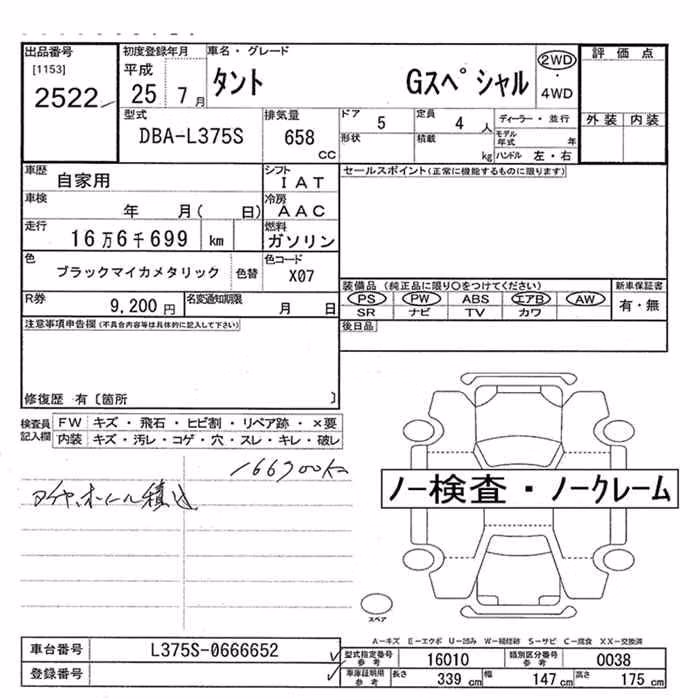 出品番号
[1153]
2522
初度登録年月
平成
25 7月
車名・グレード
タント Gスペシャル
2WD
・
4WD
評価点
外装 内装
型式
DBA-L375S
排気量
658
CC
ドア 5
定員 4 人
ディーラー・並行
形状
積載 kg
モデル年式 年
ハンドル 左・右
車歴
自家用
シフト
IAT
セールスポイント(正常に機能するものに限ります)
車検
年 月( 日)
冷房
AAC
走行
16万6千699 km
燃料
ガソリン
色
ブラックマイカメタリック
色替
色コード
X07
装備品(純正品に限り〇をつけてください)
新車保証書
PS PW ABS エアB AW
有・無
SR ナビ TV カワ
R券
9,200 円
名変通知期限
月 日
後日品
注意事項申告欄(不具合内容等は具体的に記入して下さい)
修復歴 有〔箇所 〕
検査員
記入欄
FW キズ・飛石・ヒビ割・リペア跡・×要
内装 キズ・汚レ・コゲ・穴・スレ・キレ・破レ
166700K
タイヤ、ホイール積込
ノー検査・ノークレーム
スペア
A−キズ E−エクボ U−凹み W−補修跡 S−サビ C−腐食 XX−交換済
車台番号
L375S-0666652
登録番号
型式指定番号
参考
16010
類別区分番号
参考
0038
車庫証明用
参考
長さ 339 cm
幅 147 cm
高さ 175 cm